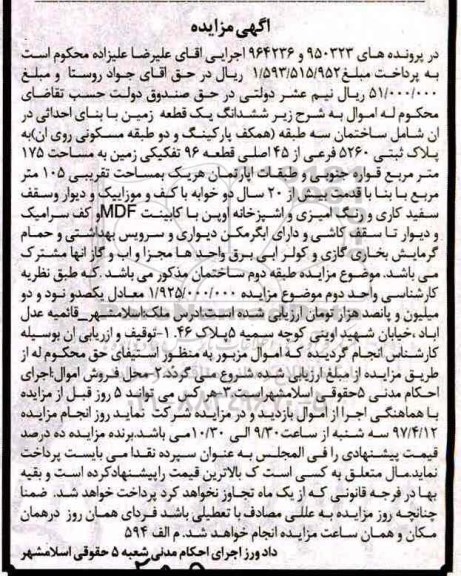 آگهی مزایده
در پرونده های ۹۵۰۳۲۳ و ۹۶۴۲۳۶ اجرایی اقای علیرضا علیزاده محکوم است
به پرداخت مبلغ ۱/۵۹۳/۵۱۵/۹۵۲ ریال در حق اقای جواد روستا و مبلغ
۵۱/۰۰۰/۰۰۰ ریال نیم عشر دولتی در حق صندوق دولت حسب تقاضای
محکوم له اموال به شرح زیر ششدانگ یک قطعه زمین با بنای احداثی در
ان شامل ساختمان سه طبقه (همکف پارکینگ و دو طبقه مسکونی روی ان)به
پلاک ثبتی ۵۲۶۰ فرعی از ۴۵ اصلی قطعه ۹۶ تفکیکی زمین به مساحت ۱۷۵
متر مربع قواره جنوبی و طبقات اپارتمان هریک بمساحت تقریبی ۱۰۵ متر
مربع با بنا با قدمت بیش از ۲۰ سال دو خوابه با کف و موزاییک و دیوار وسقف
سفید کاری و رنگ امیزی و اشپزخانه اوپن با کابینت MDFو کف سرامیک
و دیوار تا سقف کاشی و دارای ابگرمکن دیواری و سرویس بهداشتی و حمام
گرمایش بخاری گازی و کولر ابی برق واحد ها مجزا و اب و گاز انها مشترک
می باشد. موضوع مزایده طبقه دوم ساختمان مذکور می باشد .که طبق نظریه
کارشناسی واحد دوم موضوع مزایده ۱/۹۲۵/۰۰۰/۰۰۰ معادل یکصدو نود و دو
میلیون و پانصد هزار تومان ارزیابی شده است.ادرس ملک:اسلامشهر_قائمیه عدل
اباد ،خیابان شهید اوینی کوچه سمیه ۵پلاک ۱۰۴۶-توقیف و ارزیابی ان بوسیله
کارشناس انجام گردیده که اموال مزبور به منظور استیفای حق محکوم له از
طریق مزایده از مبلغ ارزیابی شده شروع می گردد.۲-محل فروش اموال:اجرای
احکام مدنی ۵حقوقی اسلامشهراست.۳-هر کس می تواند ۵ روز قبل از مزایده
با هماهنگی اجرا از اموال بازدید و در مزایده شرکت نماید روز انجام مزایده
۹۷/۴/۱۲ سه شنبه از ساعت ۹/۳۰ الی ۱۰/۳۰می باشد.برنده مزایده ده درصد
قیمت پیشنهادی را فی المجلس به عنوان سپرده نقدا می بایست پرداخت
نماید.مال متعلق به کسی است ک بالاترین قیمت راپیشنهادکرده است و بقیه
بها در فرجه قانونی که از یک ماه تجاوز نخواهد کرد پرداخت خواهد شد. ضمنا
چنانچه روز مزایده به عللی مصادف با تعطیلی باشد فردای همان روز درهمان
مکان و همان ساعت مزایده انجام خواهد شد. م الف ۵۹۴
دادورز اجرای احکام مدنی شعبه ۵ حقوقی اسلامشهر